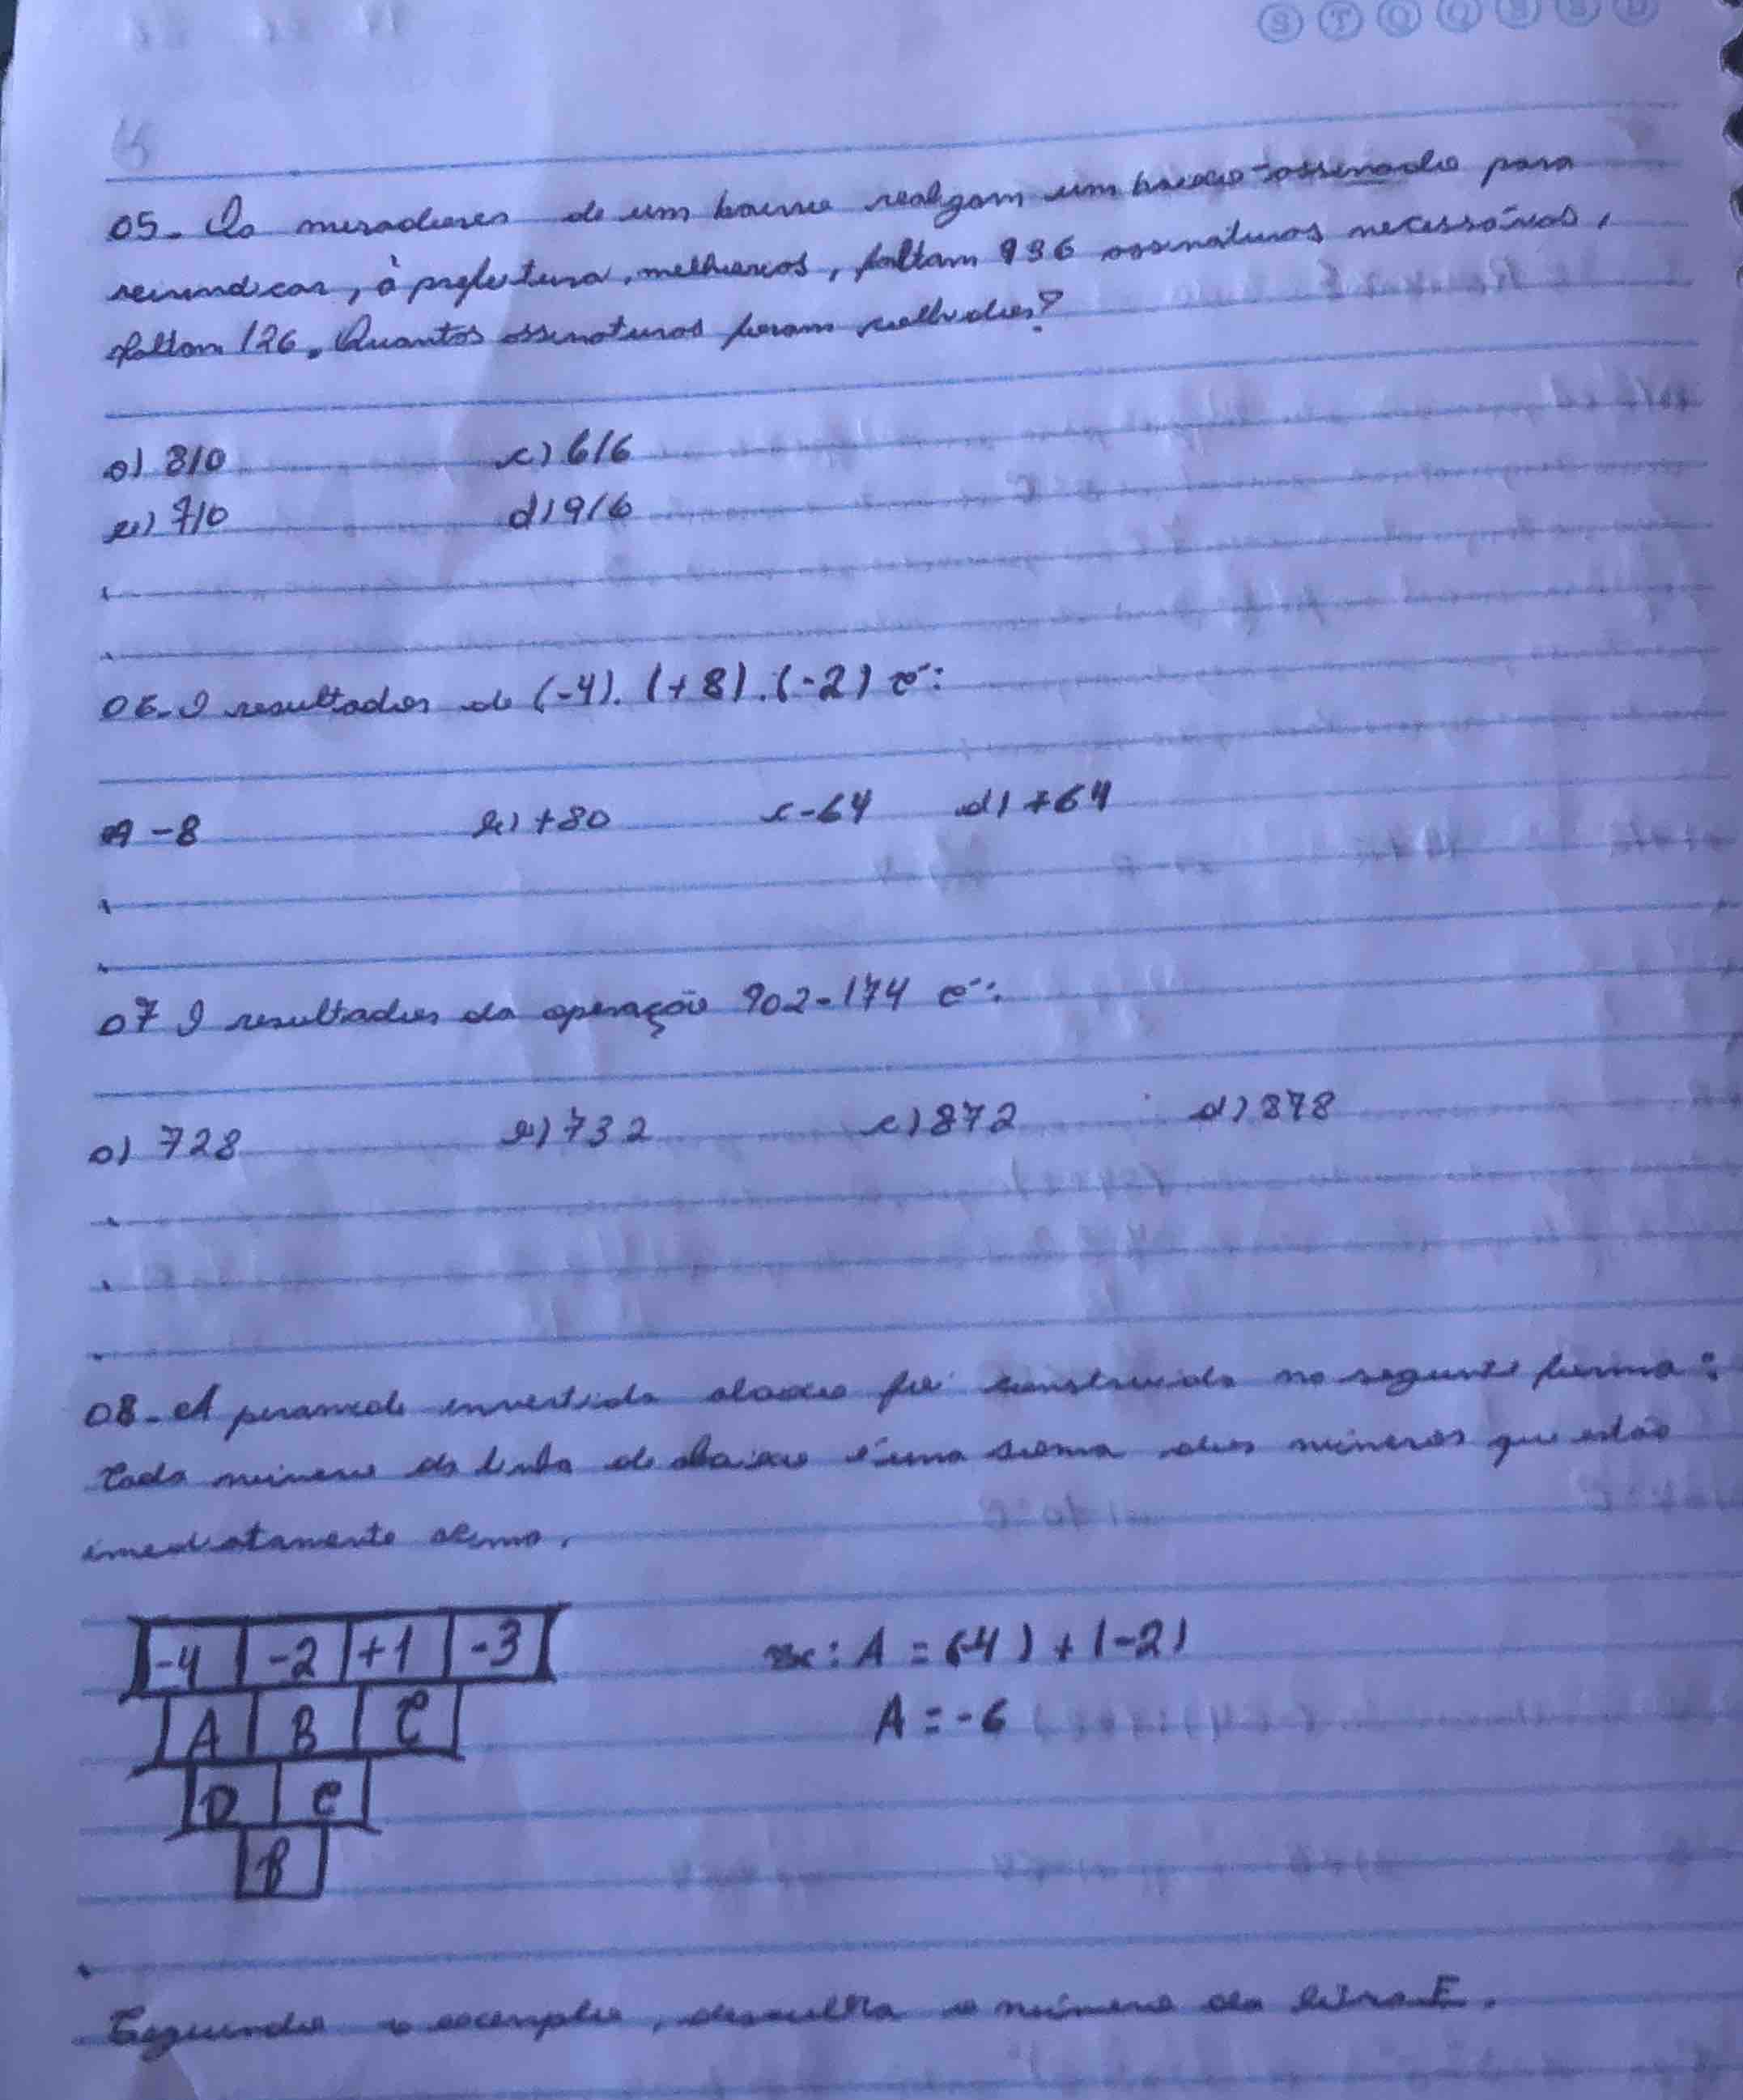 S T Q Q S S D
05. Os moradores de um bairro realizam um baixo-assinado para
reivindicar, à prefeitura, melhorias, faltam 936 assinaturas necessárias,
faltam 126. Quantas assinaturas foram colhidas?
a) 810 c) 616
b) 710 d) 916
06. O resultado de (-4). (+8).(-2) é:
a) -8 b) +80 c -64 d) +64
07 O resultado da operação 902-174 é:
a) 728 b) 732 c) 872 d) 878
08. A piramide invertida abaixo foi construida na seguinte forma:
Cada número da linha de abaixo é uma soma dos números que estão
imediatamente acima.
-4 -2 +1 -3 ex: A = (-4) + (-2)
A B C A = -6
D e
Seguindo o exemplo, descubra o número da letra E.